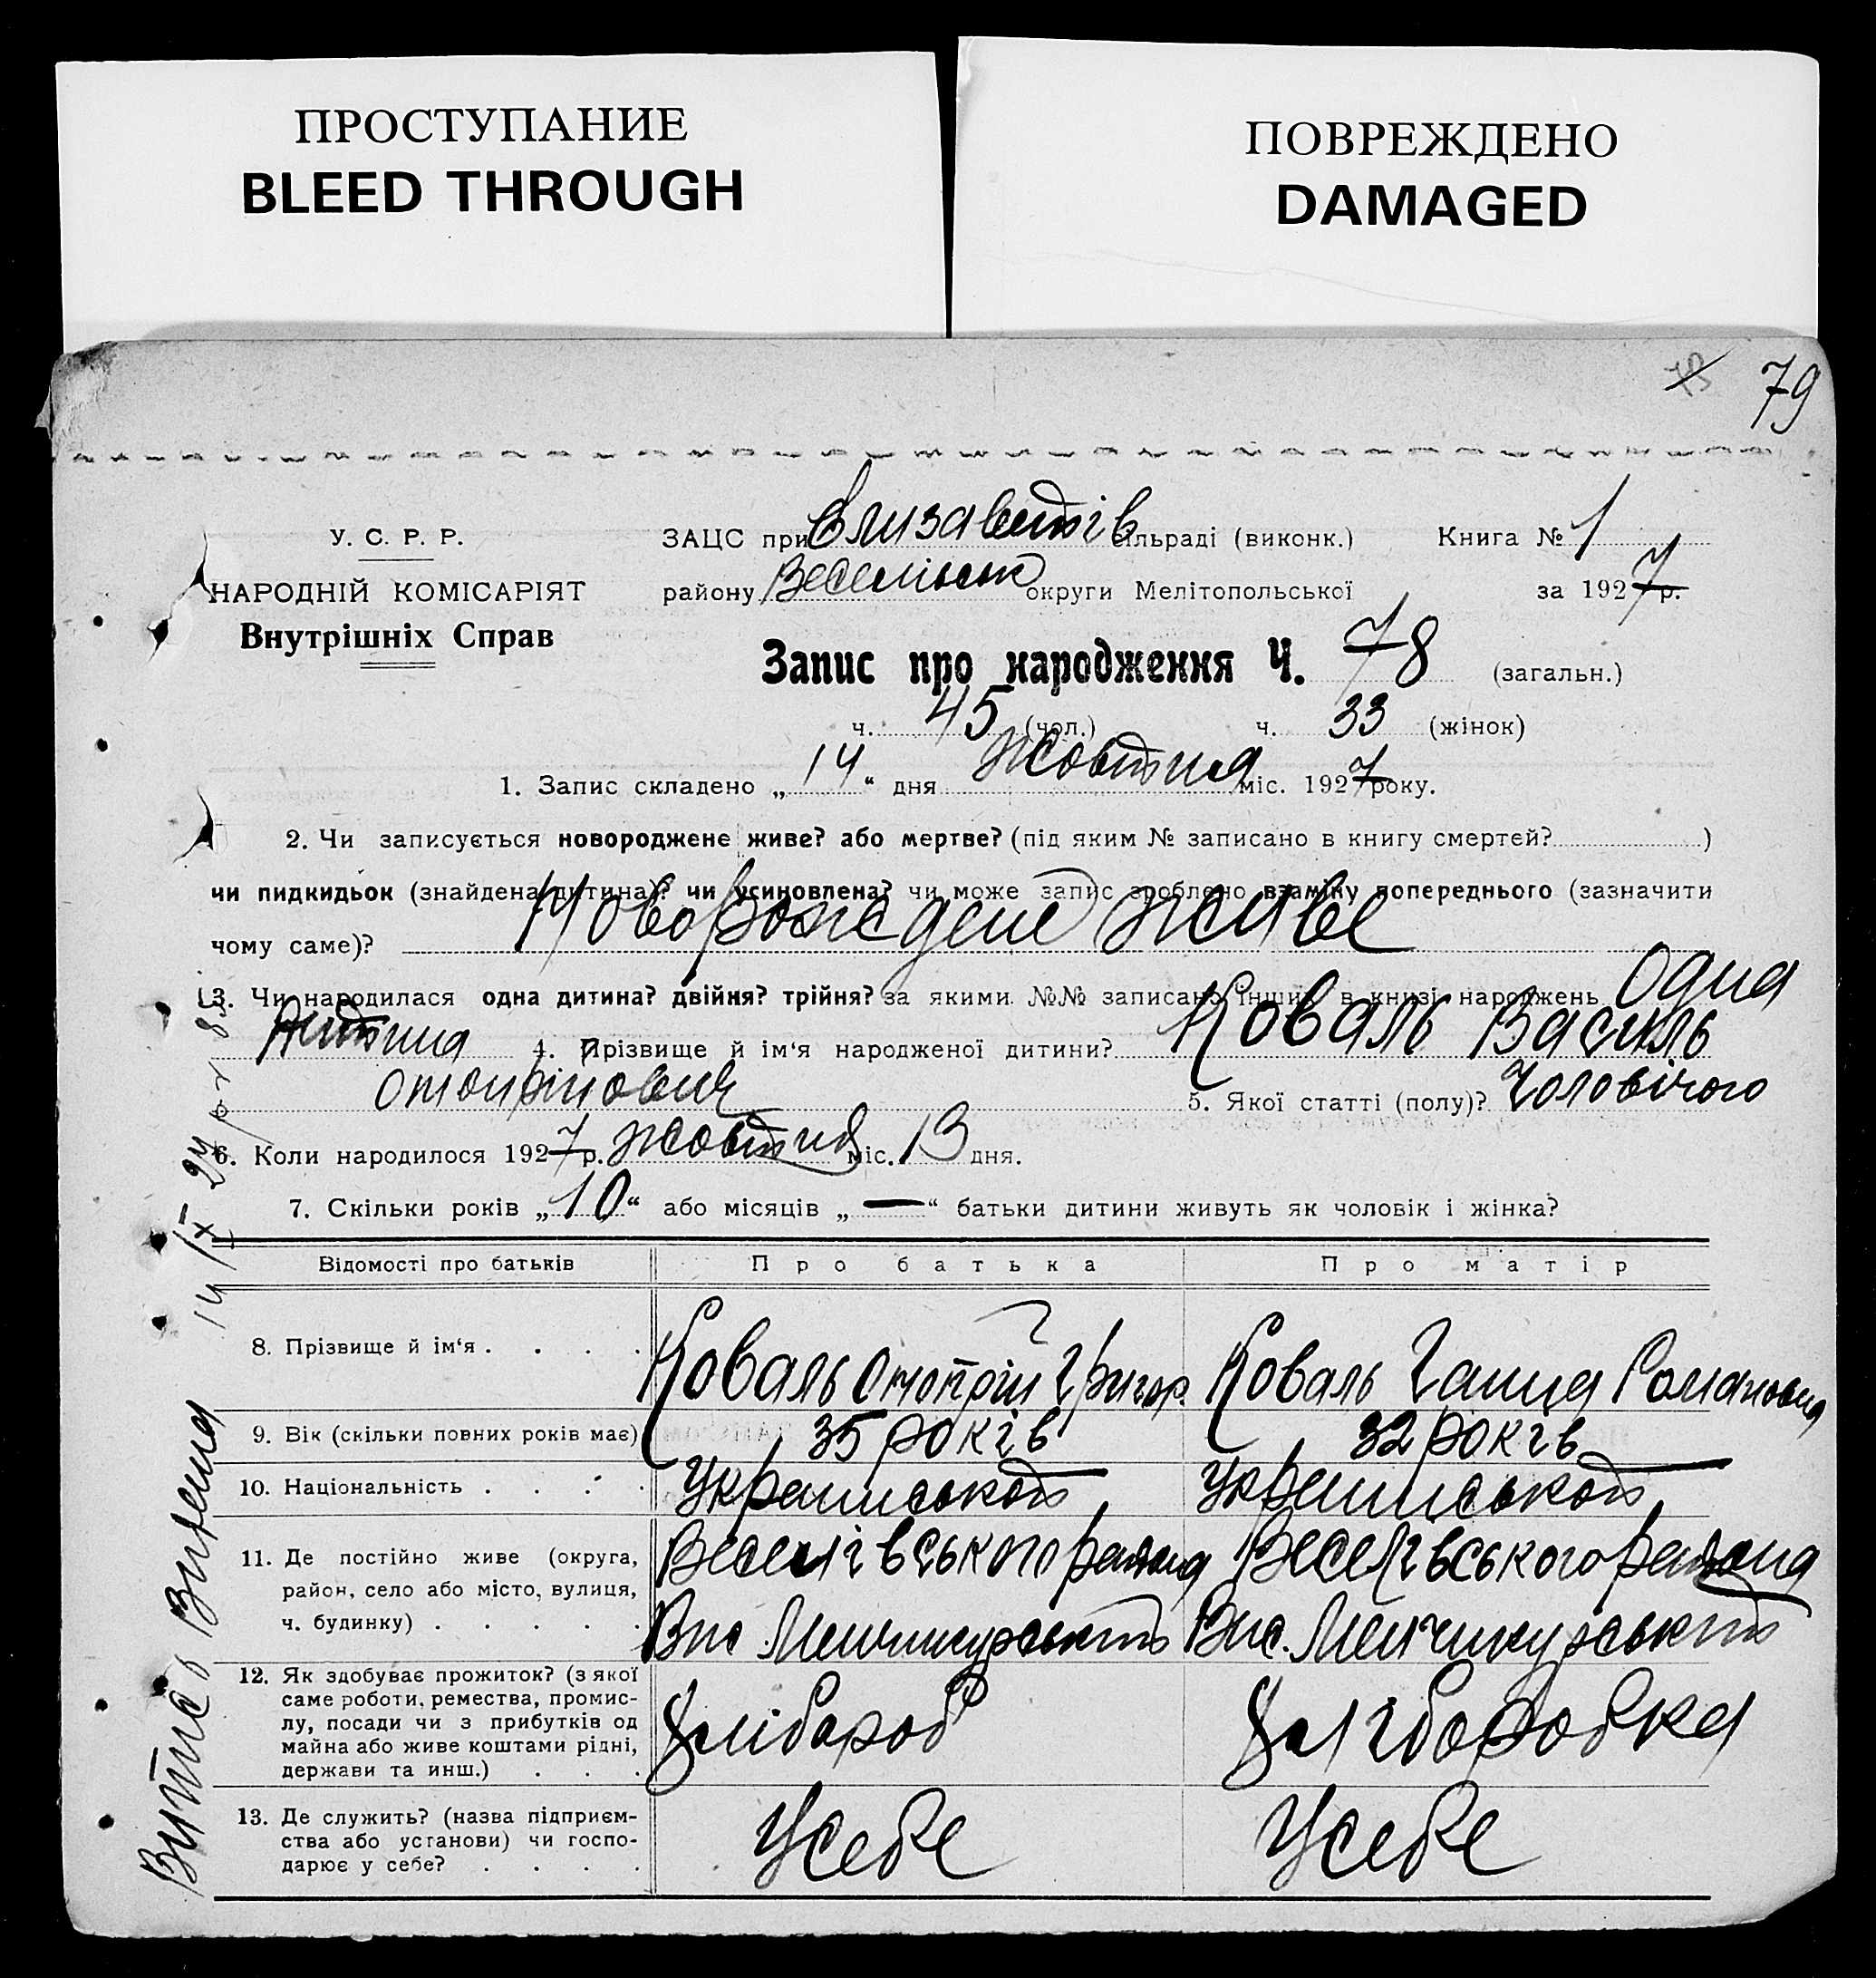 ПРОСТУПАНИЕ
BLEED THROUGH
ПОВРЕЖДЕНО
DAMAGED
79
У. С. Р. Р.
НАРОДНІЙ КОМІСАРІЯТ
Внутрішніх Справ
ЗАЦС при Єлизаветів сільраді (виконк.) Книга № 1
району Веселівськ округи Мелітопольської за 1927 р.
Запис про народження Ч. 78 (загальн.)
ч. 45 (чол.) ч. 33 (жінок)
1. Запис складено „14“ дня жовтня міс. 1927 року.
2. Чи записується новороджене живе? або мертве? (під яким № записано в книгу смертей? )
чи пидкидьок (знайдена дитина)? чи усиновлена? чи може запис зроблено взаміну попереднього (зазначити
чому саме)? Новорождене живе
3. Чи народилася одна дитина? двійня? трійня? за якими №№ записано інших в книзі народжень Одна
дитина 4. Прізвище й ім‘я народженої дитини? Коваль Василь
5. Якої статті (полу)? Чоловічого
6. Коли народилося 1927 р. жовтня міс. 13 дня.
7. Скільки років „10“ або місяців „—“ батьки дитини живуть як чоловік і жінка?
Відомості про батьків Про батька Про матір
8. Прізвище й ім‘я . . . . Коваль Григор. Коваль Ганна Романовна
9. Вік (скільки повних років має) 35 років 32 років
10. Національність . . . . Українськоі Українськоі
11. Де постійно живе (округа,
район, село або місто, вулиця,
ч. будинку) . . . . .
Веселівського района Веселівського района
12. Як здобуває прожиток? (з якої
саме роботи, ремества, промис-
лу, посади чи з прибутків од
майна або живе коштами рідні,
держави та инш.) . . .
Хлібороб Хліборобка
13. Де служить? (назва підприєм-
ства або установи) чи госпо-
дарює у себе? . . . .
У себе У себе